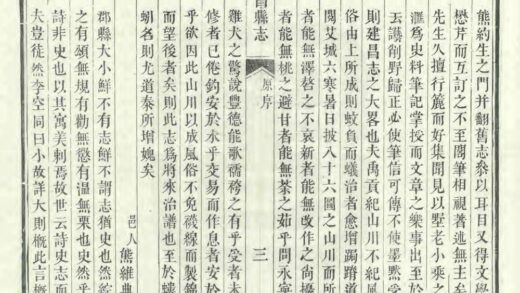 熊約生之門并翻舊志叅以耳目又得文學
懋芹而互訂之不至閣筆相視著述無主矣
先生久擅行簏而好集聞見以墅老小乘之
滙爲史料筆記掌授而文章之樂事出至於
云譏削野歸正必使筆信可傳不使墨黙受
則建昌志之大畧也夫禹貢紀山川不紀風
俗由上所成則蚊負而蟻治者愈增蠲躋道
閱艾城六寒暑日披八十六圖之山川而所
者能無澤啓之不哀新者能無改作之尚擾
者能無桃之避甘者能無荼之茹乎問永寧
昌縣志
原序
三
雞犬之驚說豊德能歌襦袴之有乎受者未
修者已倦鈞安於水乎交易而作息者安於
乎欲因此山川以成風俗不免礟線而製錦
而望後者矣則此志爲將來治譜也至於蠙
蚓名則尤道泰所增媿矣
邑人熊維典
郡縣大小鮮不有志鮮不謂志猶史也然綜
之有頌無規有勸無懲有溫無栗也史然乎
詩非史也以其寓美刺焉故世云詩史志而
夫豈徒然李空同曰小故詳大則概此言概